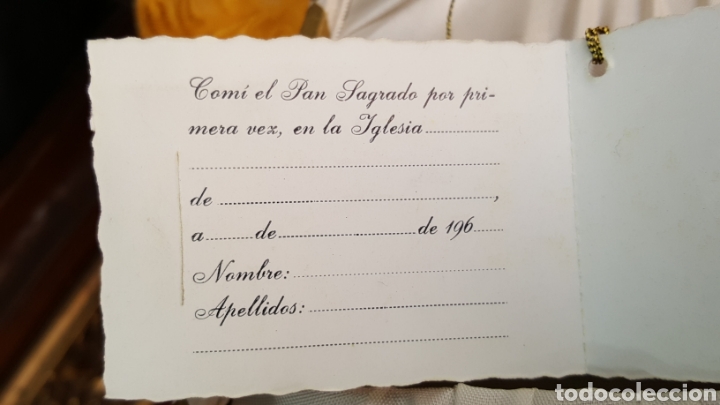 Comí el Pan Sagrado por pri-
mera vez, en la Iglesia
de ,
a de de 196
Nombre:
Apellidos:
todocoleccion